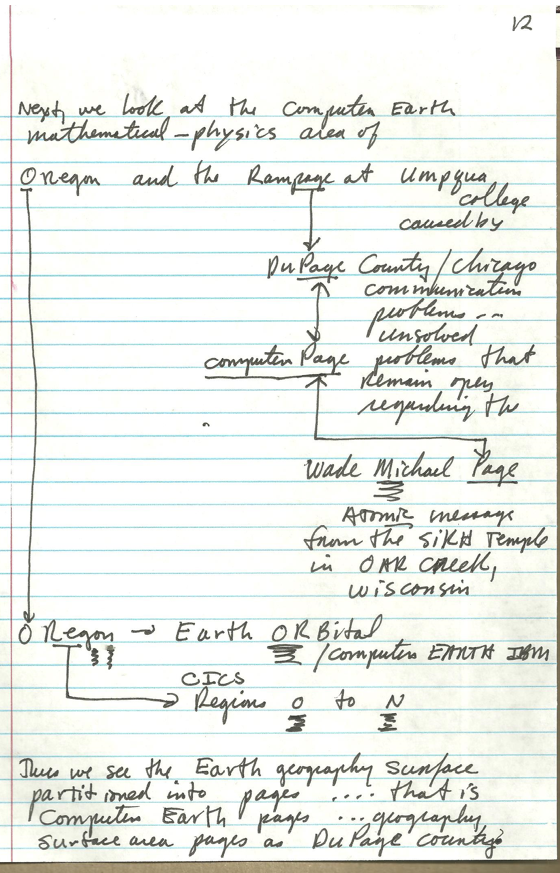 12
Next, we look at the Computer Earth
mathematical-physics area of
Oregon and the Rampage at Umpqua
college
caused by
DuPage County/Chicago
communication
problems ...
unsolved
computer Page problems that
remain open
regarding the
Wade Michael Page
Atomic message
from the SIKH Temple
in OAK CREEK,
Wisconsin
O Regon → Earth ORBital
/computer EARTH IBM
CICS
Regions O to N
Thus we see the Earth geography surface
partitioned into pages .... that is
Computer Earth pages ... geography
surface area pages as DuPage county's